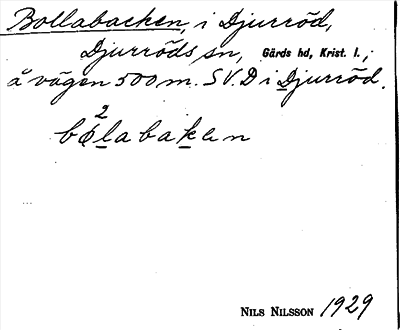 Bollabacken, i Djurröd,
Djurröds sn, Gärds hd, Krist. l.,
å vägen 500 m. S V. D i Djurröd.
2
bólabaken
NILS NILSSON 1929